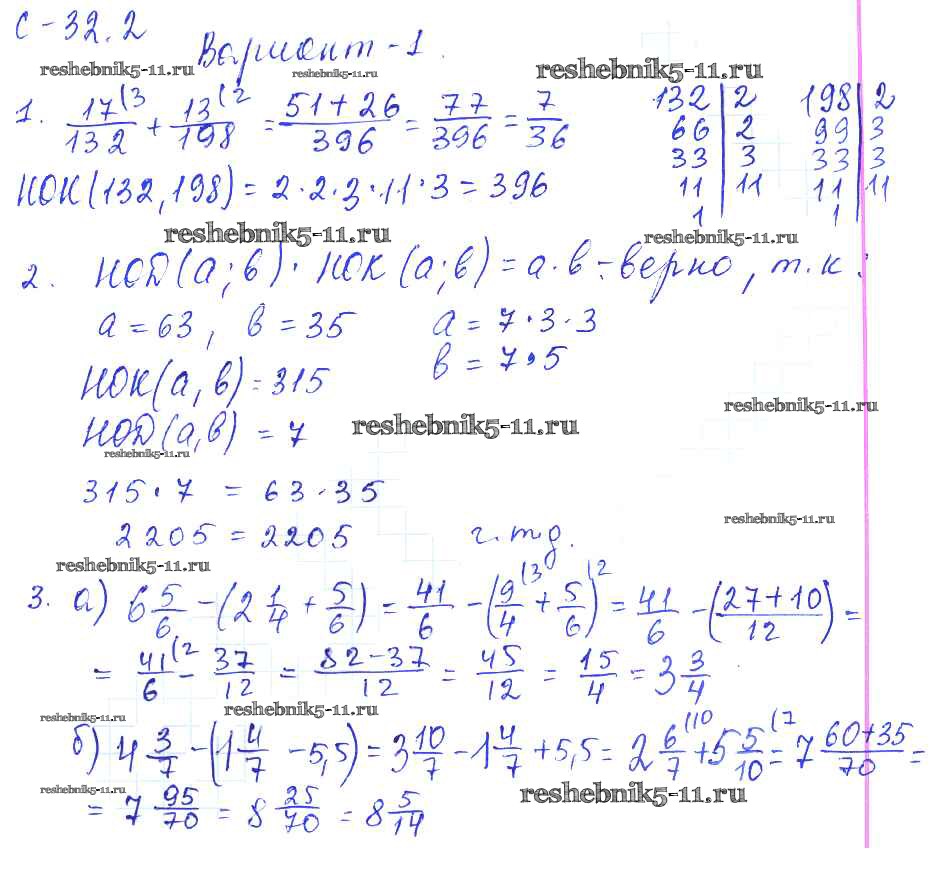 С-32.2
Вариант-1.
reshebnik5-11.ru reshebnik5-11.ru reshebnik5-11.ru
1. 17(3/132 + 13(2/198 = (51+26)/396 = 77/396 = 7/36
132 | 2 198 | 2
66 | 2 99 | 3
33 | 3 33 | 3
11 | 11 11 | 11
1 1
НОК(132,198) = 2·2·3·11·3 = 396
reshebnik5-11.ru reshebnik5-11.ru
2. НОД(а;в)·НОК(а;в) = а·в - верно, т.к:
а = 63, в = 35 а = 7·3·3
в = 7·5
НОК(а,в) = 315
reshebnik5-11.ru
НОД(а,в) = 7 reshebnik5-11.ru
reshebnik5-11.ru
315·7 = 63·35
reshebnik5-11.ru
2205 = 2205 ч.т.д.
reshebnik5-11.ru
3. а) 6 5/6 - (2 1/4 + 5/6) = 41/6 - (9/4(3 + 5/6)(2 = 41/6 - ((27+10)/12) =
= 41(2/6 - 37/12 = (82-37)/12 = 45/12 = 15/4 = 3 3/4
reshebnik5-11.ru reshebnik5-11.ru
б) 4 3/7 - (1 4/7 - 5,5) = 3 10/7 - 1 4/7 + 5,5 = 2 6(10/7 + 5 5(7/10 = 7 (60+35)/70 =
reshebnik5-11.ru reshebnik5-11.ru
= 7 95/70 = 8 25/70 = 8 5/14